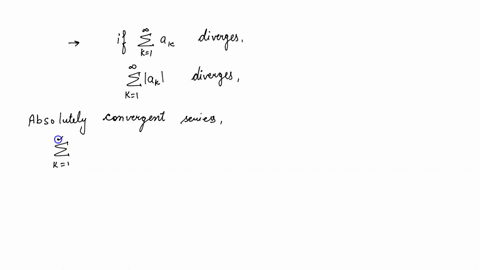 → if ∞∑k=1 aₖ diverges,
∞∑k=1 |aₖ| diverges,
Absolutely convergent series,
∞∑k=1